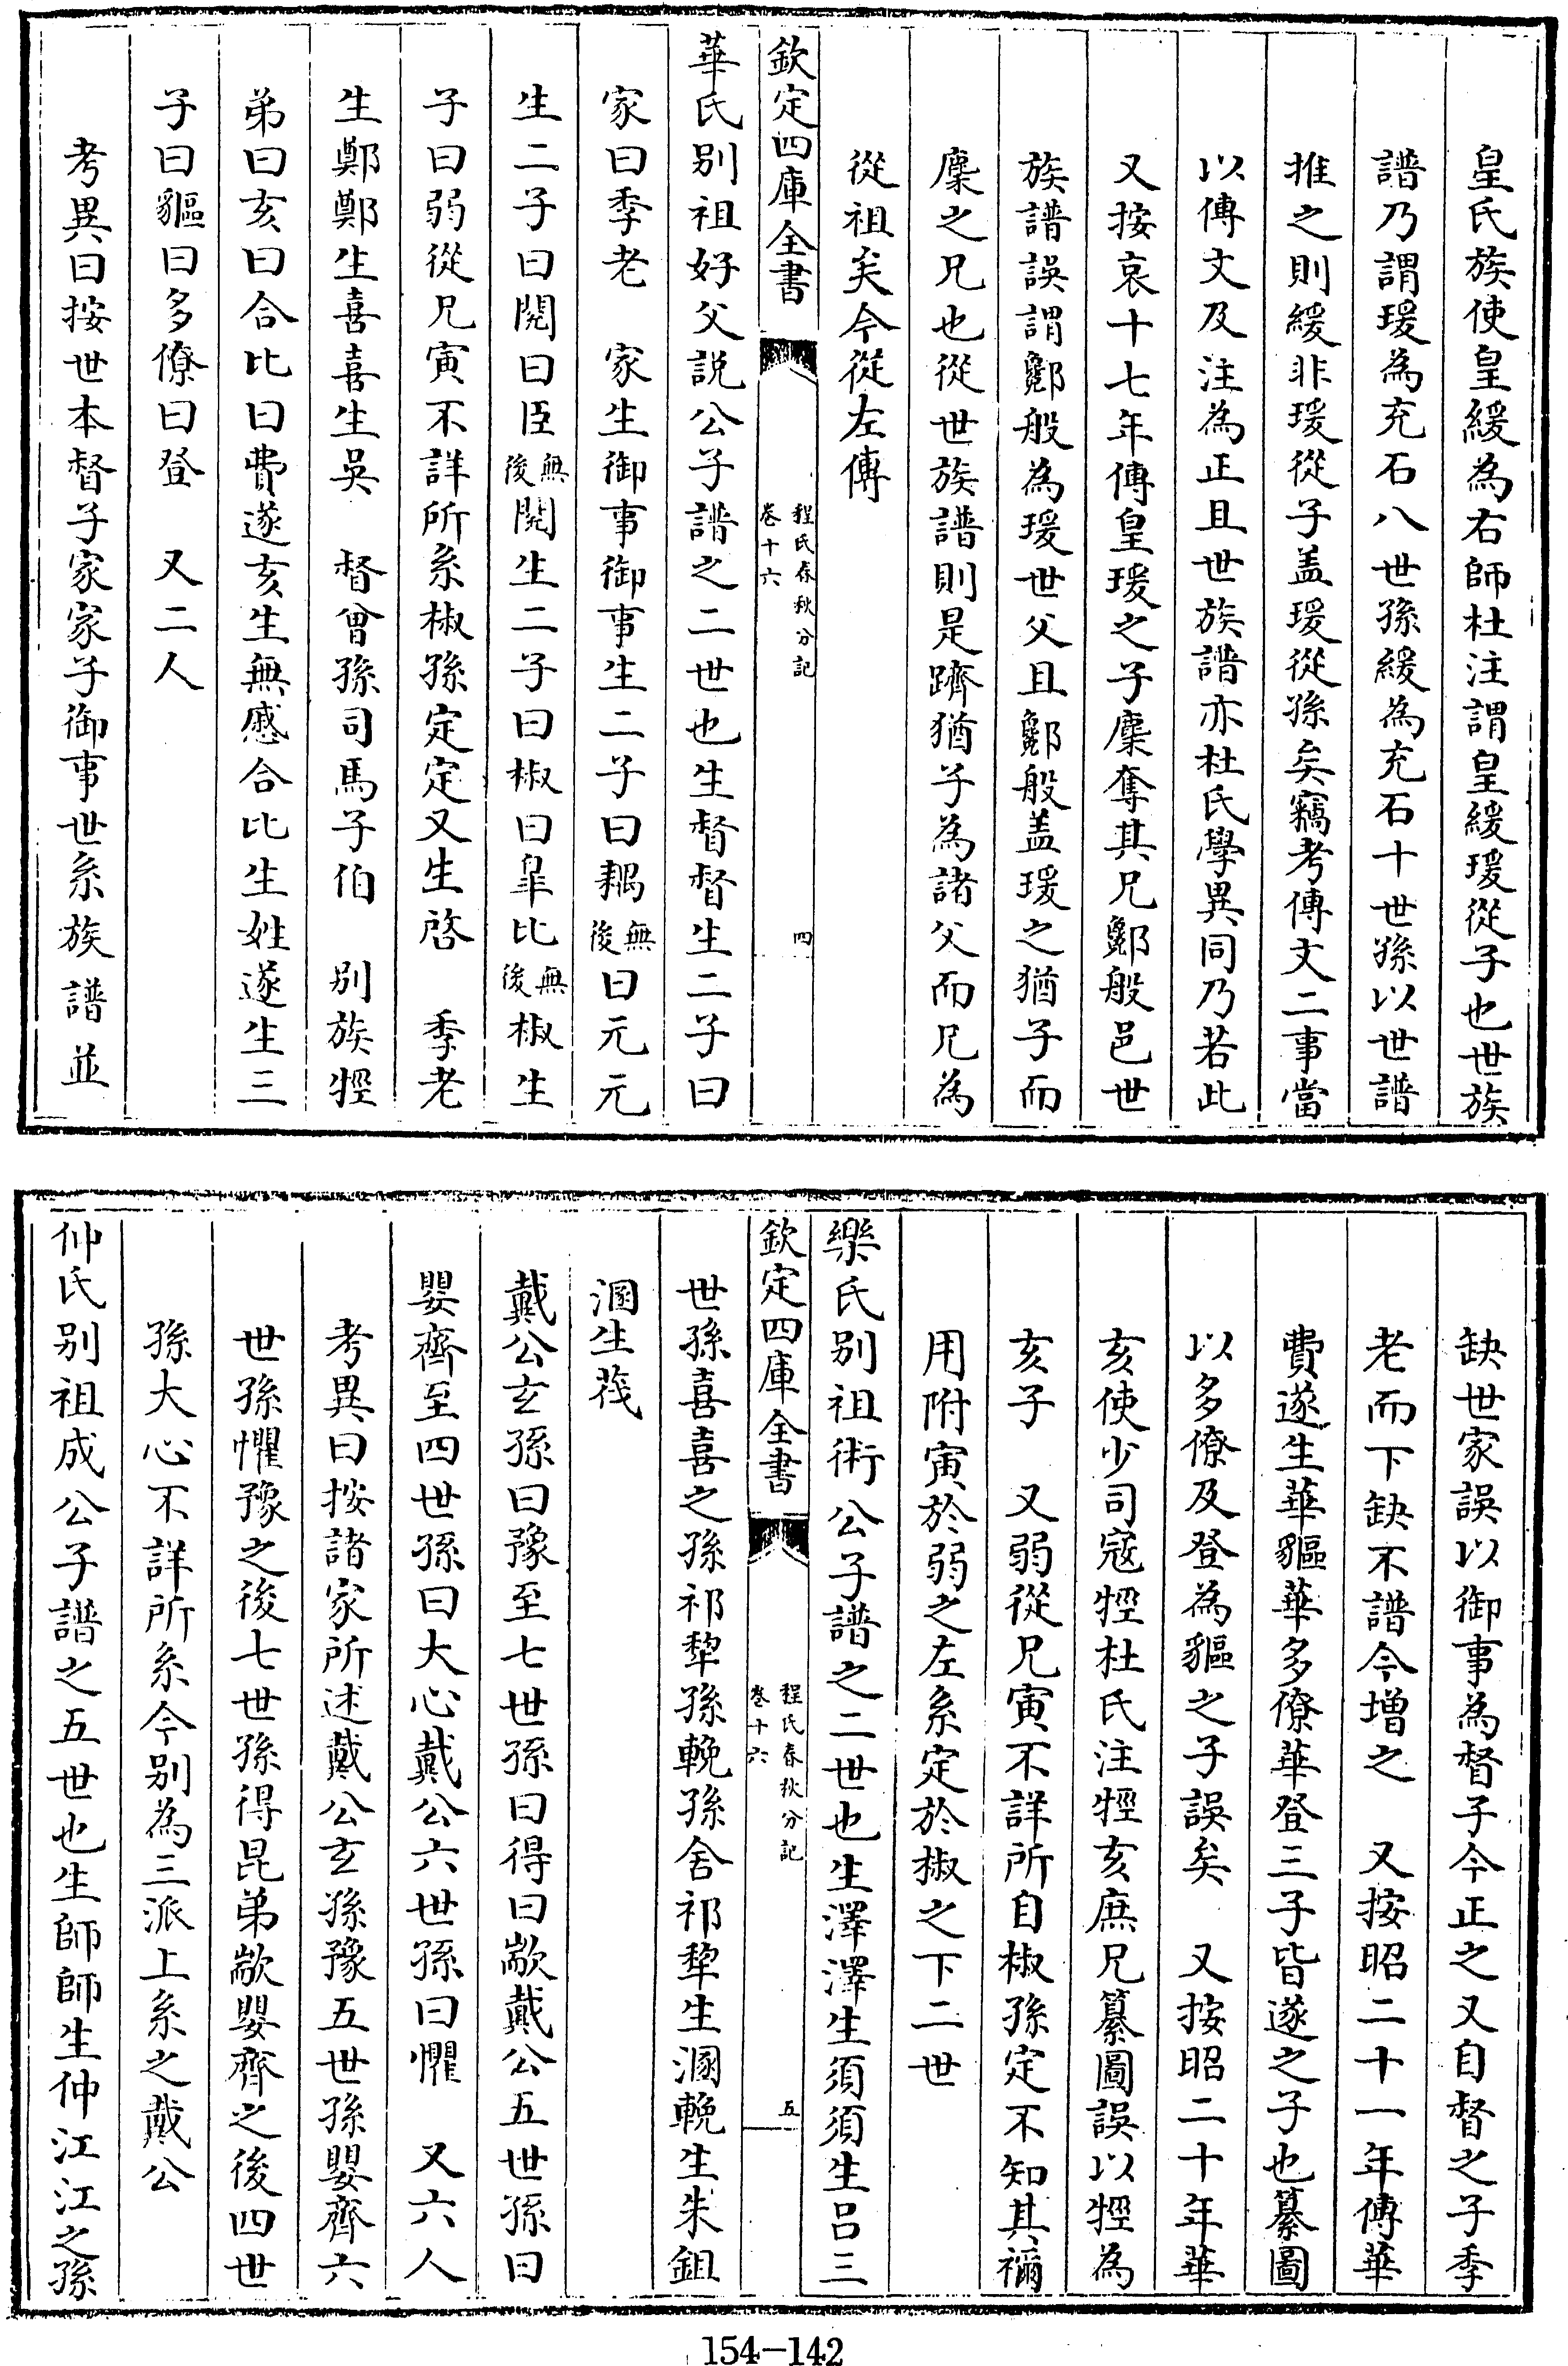 皇氏族使皇緩為右師杜注謂皇緩瑗從子也世族
譜乃謂瑗為充石八世孫緩為充石十世孫以世譜
推之則緩非瑗從子盖瑗從孫矣竊考傳文二事當
以傳文及注為正且世族譜亦杜氏學異同乃若此
又按哀十七年傳皇瑗之子麇奪其兄酁般邑世
族譜誤謂酁般為瑗世父且酁般盖瑗之猶子而
麇之兄也從世族譜則是躋猶子為諸父而兄為
從祖矣今從左傳
欽定四庫全書
程氏春秋分記
卷十六
四
華氏別祖好父説公子譜之二世也生督督生二子曰
家曰季老　家生御事御事生二子曰耦無後曰元元
生二子曰閱曰臣無後閱生二子曰椒曰臯比無後椒生
子曰弱從兄寅不詳所系椒孫定定又生啓　季老
生鄭鄭生喜喜生吳　督曾孫司馬子伯　別族䝼
弟曰亥曰合比曰費遂亥生無慼合比生姓遂生三
子曰貙曰多僚曰登　又二人
考異曰按世本督子家家子御事世系族譜並
缺世家誤以御事為督子今正之又自督之子季
老而下缺不譜今增之　又按昭二十一年傳華
費遂生華貙華多僚華登三子皆遂之子也纂圖
以多僚及登為貙之子誤矣　又按昭二十年華
亥使少司寇牼杜氏注牼亥庶兄纂圖誤以牼為
亥子　又弱從兄寅不詳所自椒孫定不知其禰
用附寅於弱之左系定於椒之下二世
樂氏別祖術公子譜之二世也生澤澤生須須生呂三
欽定四庫全書
程氏春秋分記
卷十六
五
世孫喜喜之孫祁犂孫輓孫舍祁犂生溷輓生朱鉏
溷生茷
戴公玄孫曰豫至七世孫曰得曰歂戴公五世孫曰
嬰齊至四世孫曰大心戴公六世孫曰懼　又六人
考異曰按諸家所述戴公玄孫豫五世孫嬰齊六
世孫懼豫之後七世孫得昆弟歂嬰齊之後四世
孫大心不詳所系今別為三派上系之戴公
仲氏別祖成公子譜之五世也生師師生仲江江之孫
154-142